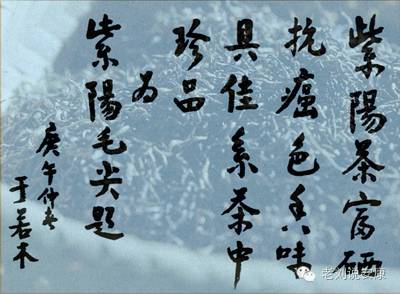 紫陽茶富硒
抗癌色香味
具佳系茶中
珍品
为
紫陽毛尖题
庚午仲
于若木
老刘说安康